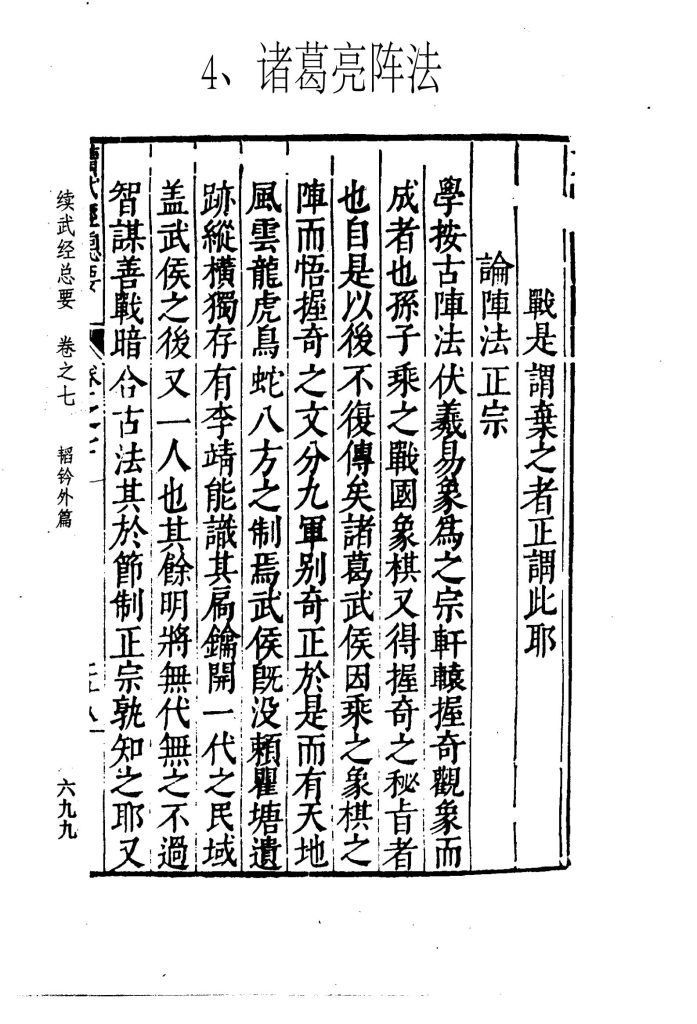 4、诸葛亮阵法
戰是謂棄之者正謂此耶
論陣法正宗
學按古陣法伏羲易象為之宗軒轅握奇觀象而
成者也孫子乘之戰國象棋又得握奇之秘旨者
也自是以後不復傳矣諸葛武侯因乘之象棋之
陣而悟握奇之文分九軍别奇正於是而有天地
風雲龍虎鳥蛇八方之制焉武侯既没賴瞿塘遺
跡縱橫獨存有李靖能識其扃鑰開一代之民域
盖武侯之後又一人也其餘明將無代無之不過
智謀善戰暗合古法其於節制正宗孰知之耶又
續武經總要
续武经总要 卷之七 韬钤外篇
六九九